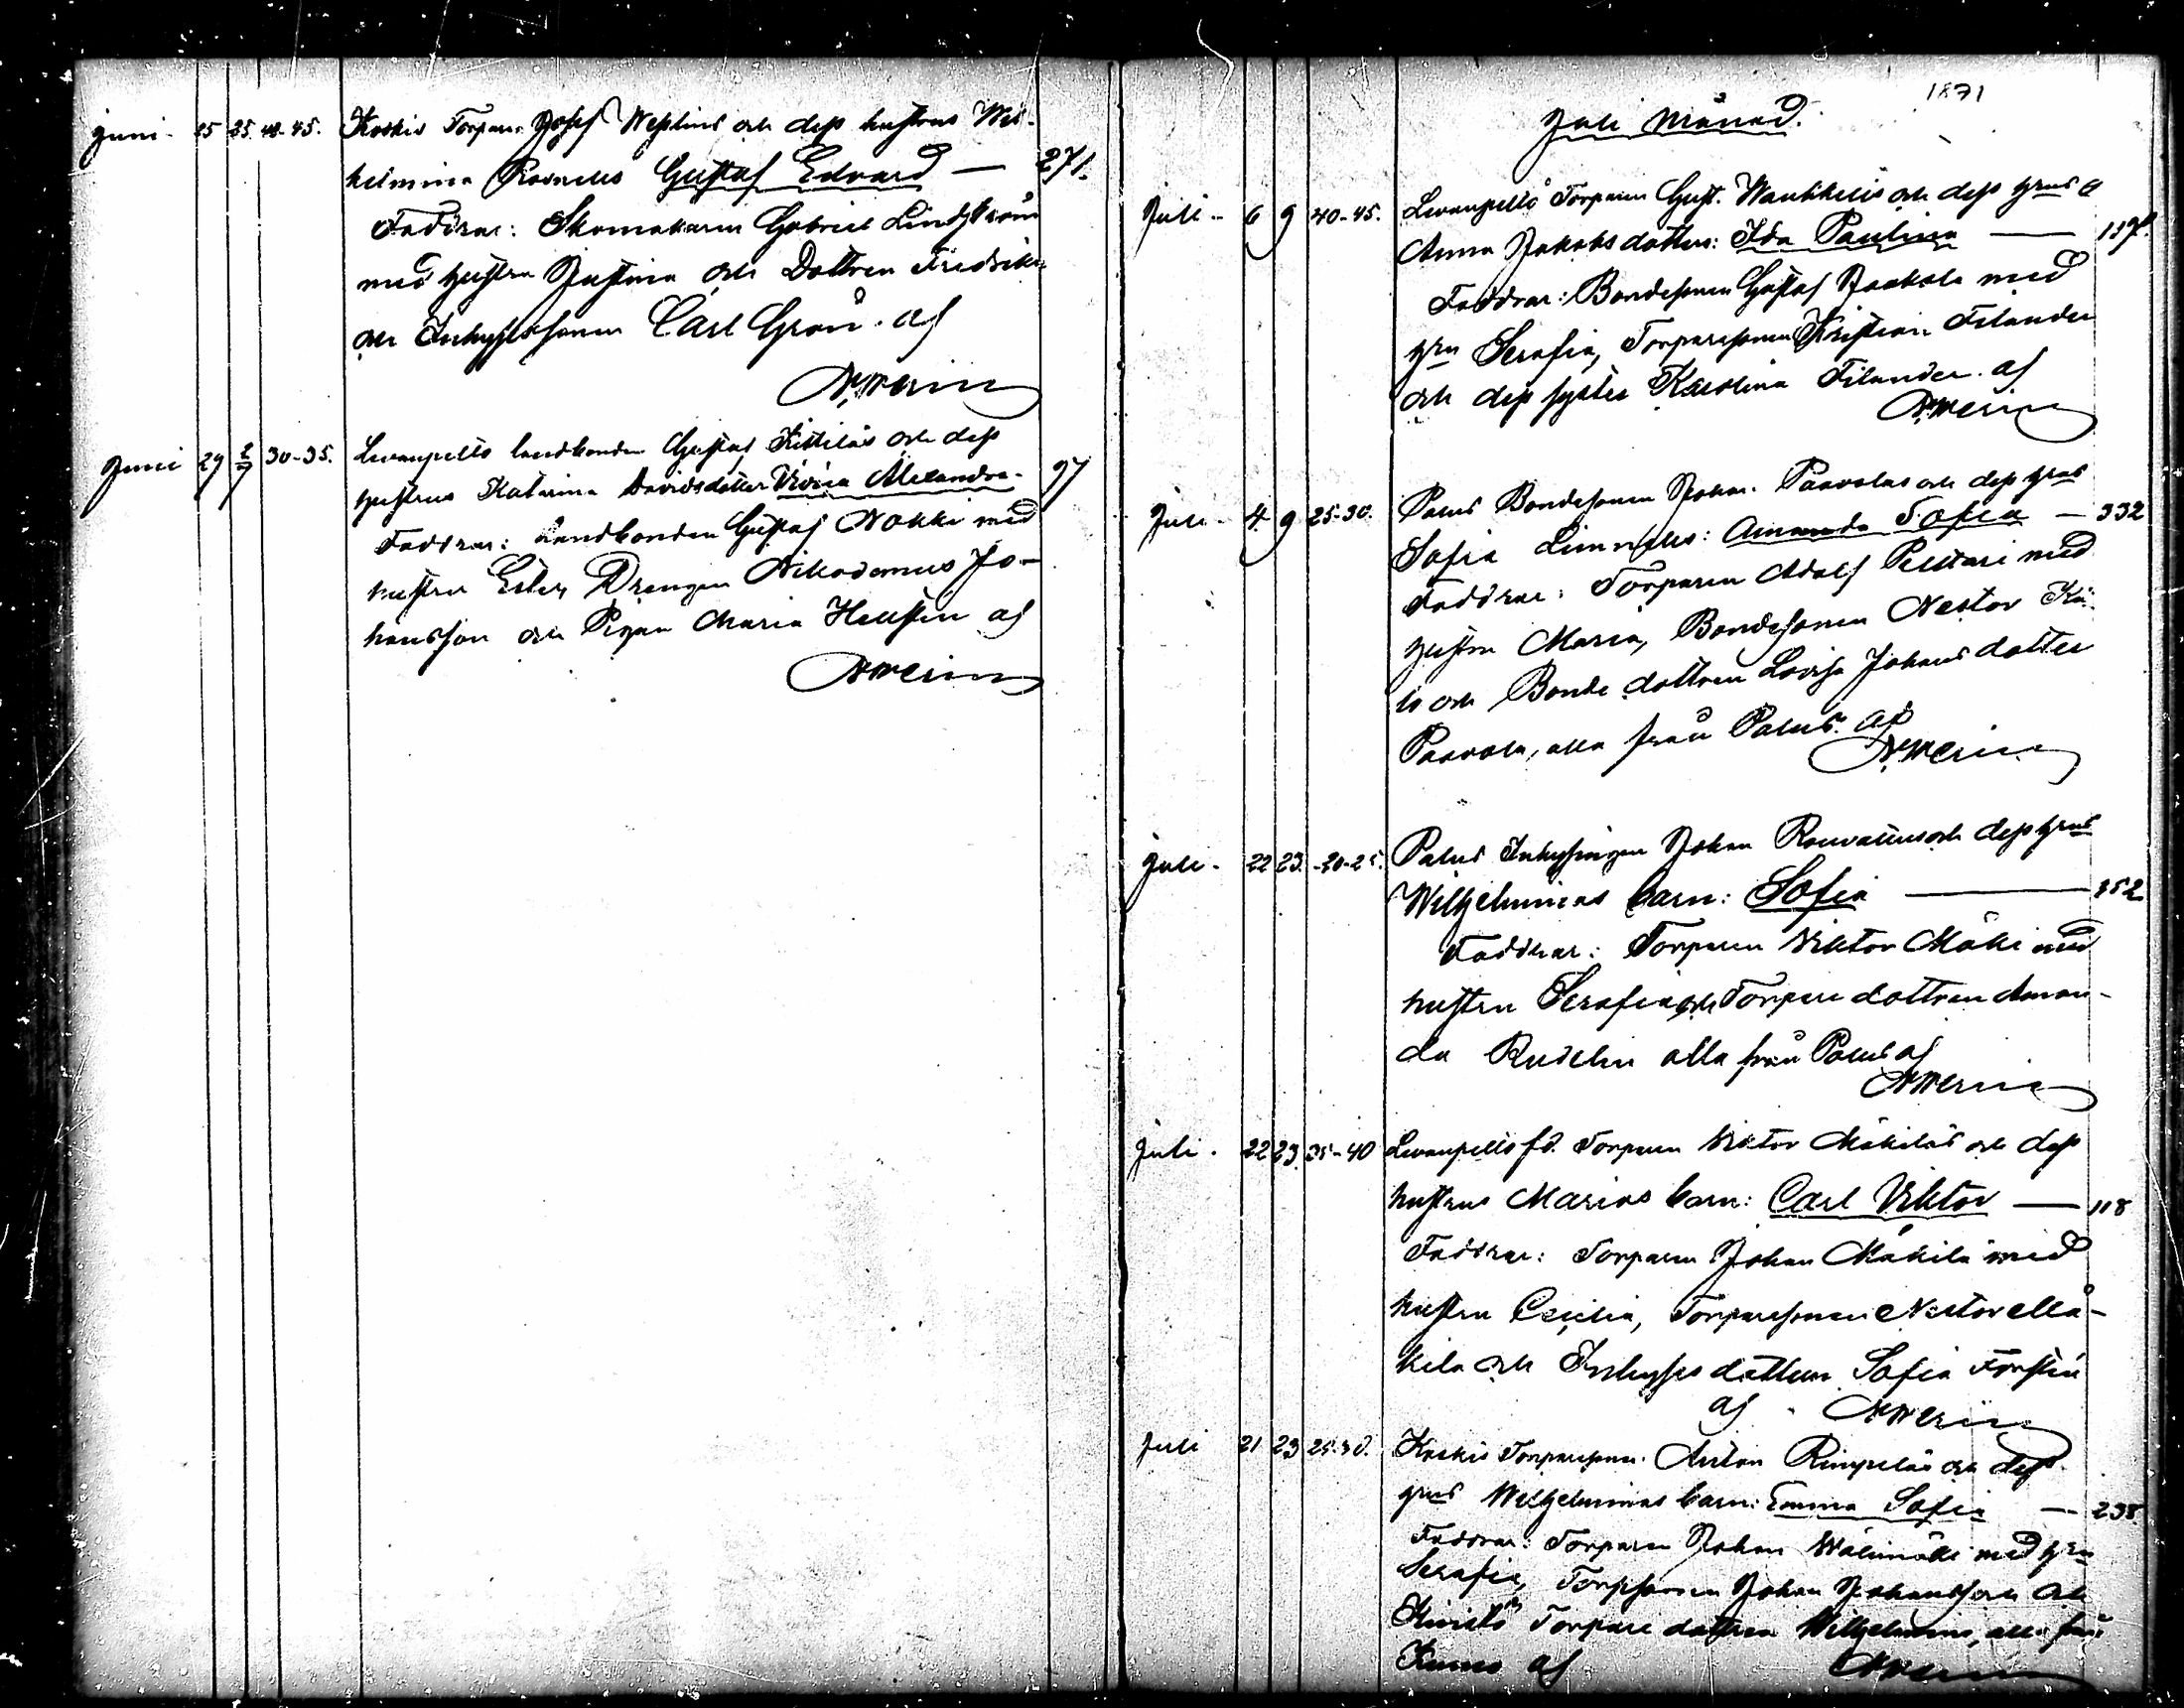 Juni - 25 25 40-45. Koskis Torparen Josef Weslins och dess hustrus Wil-
helmina Gustaf Edvard — 271.
Faddrar: Skomakaren Gabriel Lindström
med hustru Justina och Dottren Fredrika
och Inhysessonen Carl Grön. af
Juni 29 2/7 30-35. Levanpelto landbonden Gustaf Kittiläs och dess
hustrus Katarina Davidsdotter Viviva Alexandra - 97
Faddrar: Landbonden Gustaf Nokki med
hustru Ester, Drengen Nikodemus Jo-
hansson och Pigan Maria Hellsten af
1871
Juli Månad.
Juli - 6 9 40-45. Levanpelto Torparen Gust. och dess hrus
Anna Jakobsdotters: Ida Paulina — 117.
Faddrar: Bondesonen Gustaf Jaakola med
hru Serafia, Torparesonen Kristian Filander
och dess syster Karolina Filander. af
Juli - 4 9 25-30. Palus Bondesonen Johan Paavolas och dess hrus
Sofia : Amanda Sofia — 332
Faddrar: Torparen Adolf Pelttari med
hustru Maria, Bondesonen Nestor
och Bondedottren Lovisa Johansdotter
Paavola, alla från Palus. af
Juli - 22 23. -20-25. Palus Inhysingen Johan och dess hrus
Wilhelminas barn: Sofia — 352
Faddrar: Torparen Viktor Mäki med
hustru Serafia och Torparedottren Aman-
da Rudelin alla från Palus af
Juli. 22 23. 35-40 Levanpelto fd. Torparen Viktor Mäkiläs och dess
hustrus Marias barn: Carl Viktor — 118
Faddrar: Torparen Johan Mäkilä med
hustru Cecilia, Torparesonen Nestor Mä-
kilä och Inhysesdottren Sofia Forstén
af
Juli 21 23 25-30. Koskis Torparesonen Anton Rimpeläs och dess
hrus Wilhelminas barn: Emma Sofia — 238.
Faddrar: Torparen Johan Wälimäki med hru
Serafia, Torpsonen Johan Johansson och
Kivistö Torparedottren Wilhelmina, alla från
af